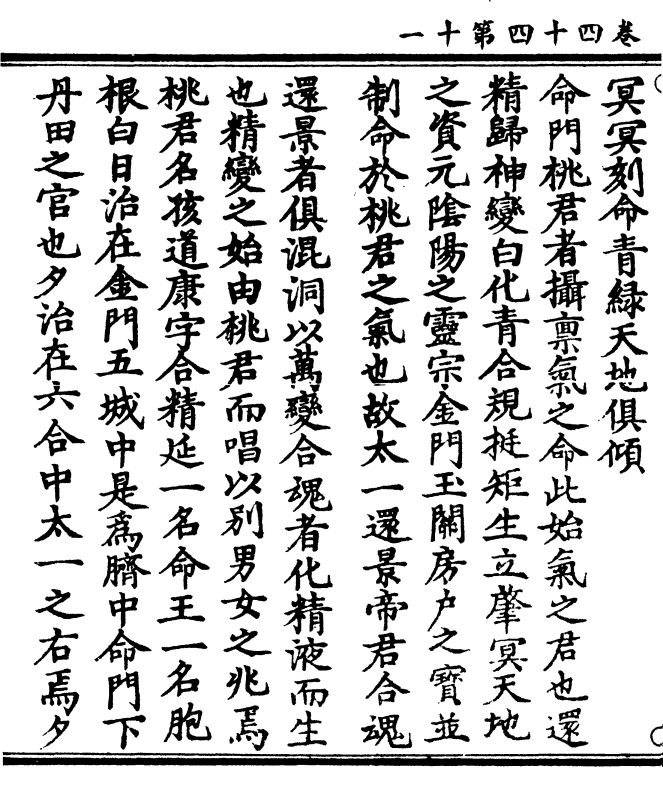 卷四十四第十一
冥冥刻命青緑天地俱傾
命門桃君者攝禀氣之命此始氣之君也還
精歸神變白化青合規挺矩生立肇冥天地
之資元陰陽之靈宗金門玉關房户之寶並
制命於桃君之氣也故太一還景帝君合魂
還景者俱混洞以萬變合魂者化精液而生
也精變之始由桃君而唱以别男女之兆焉
桃君名孩道康字合精延一名命王一名胞
根白日治在金門五城中是爲臍中命門下
丹田之宫也夕治在六合中太一之右焉夕